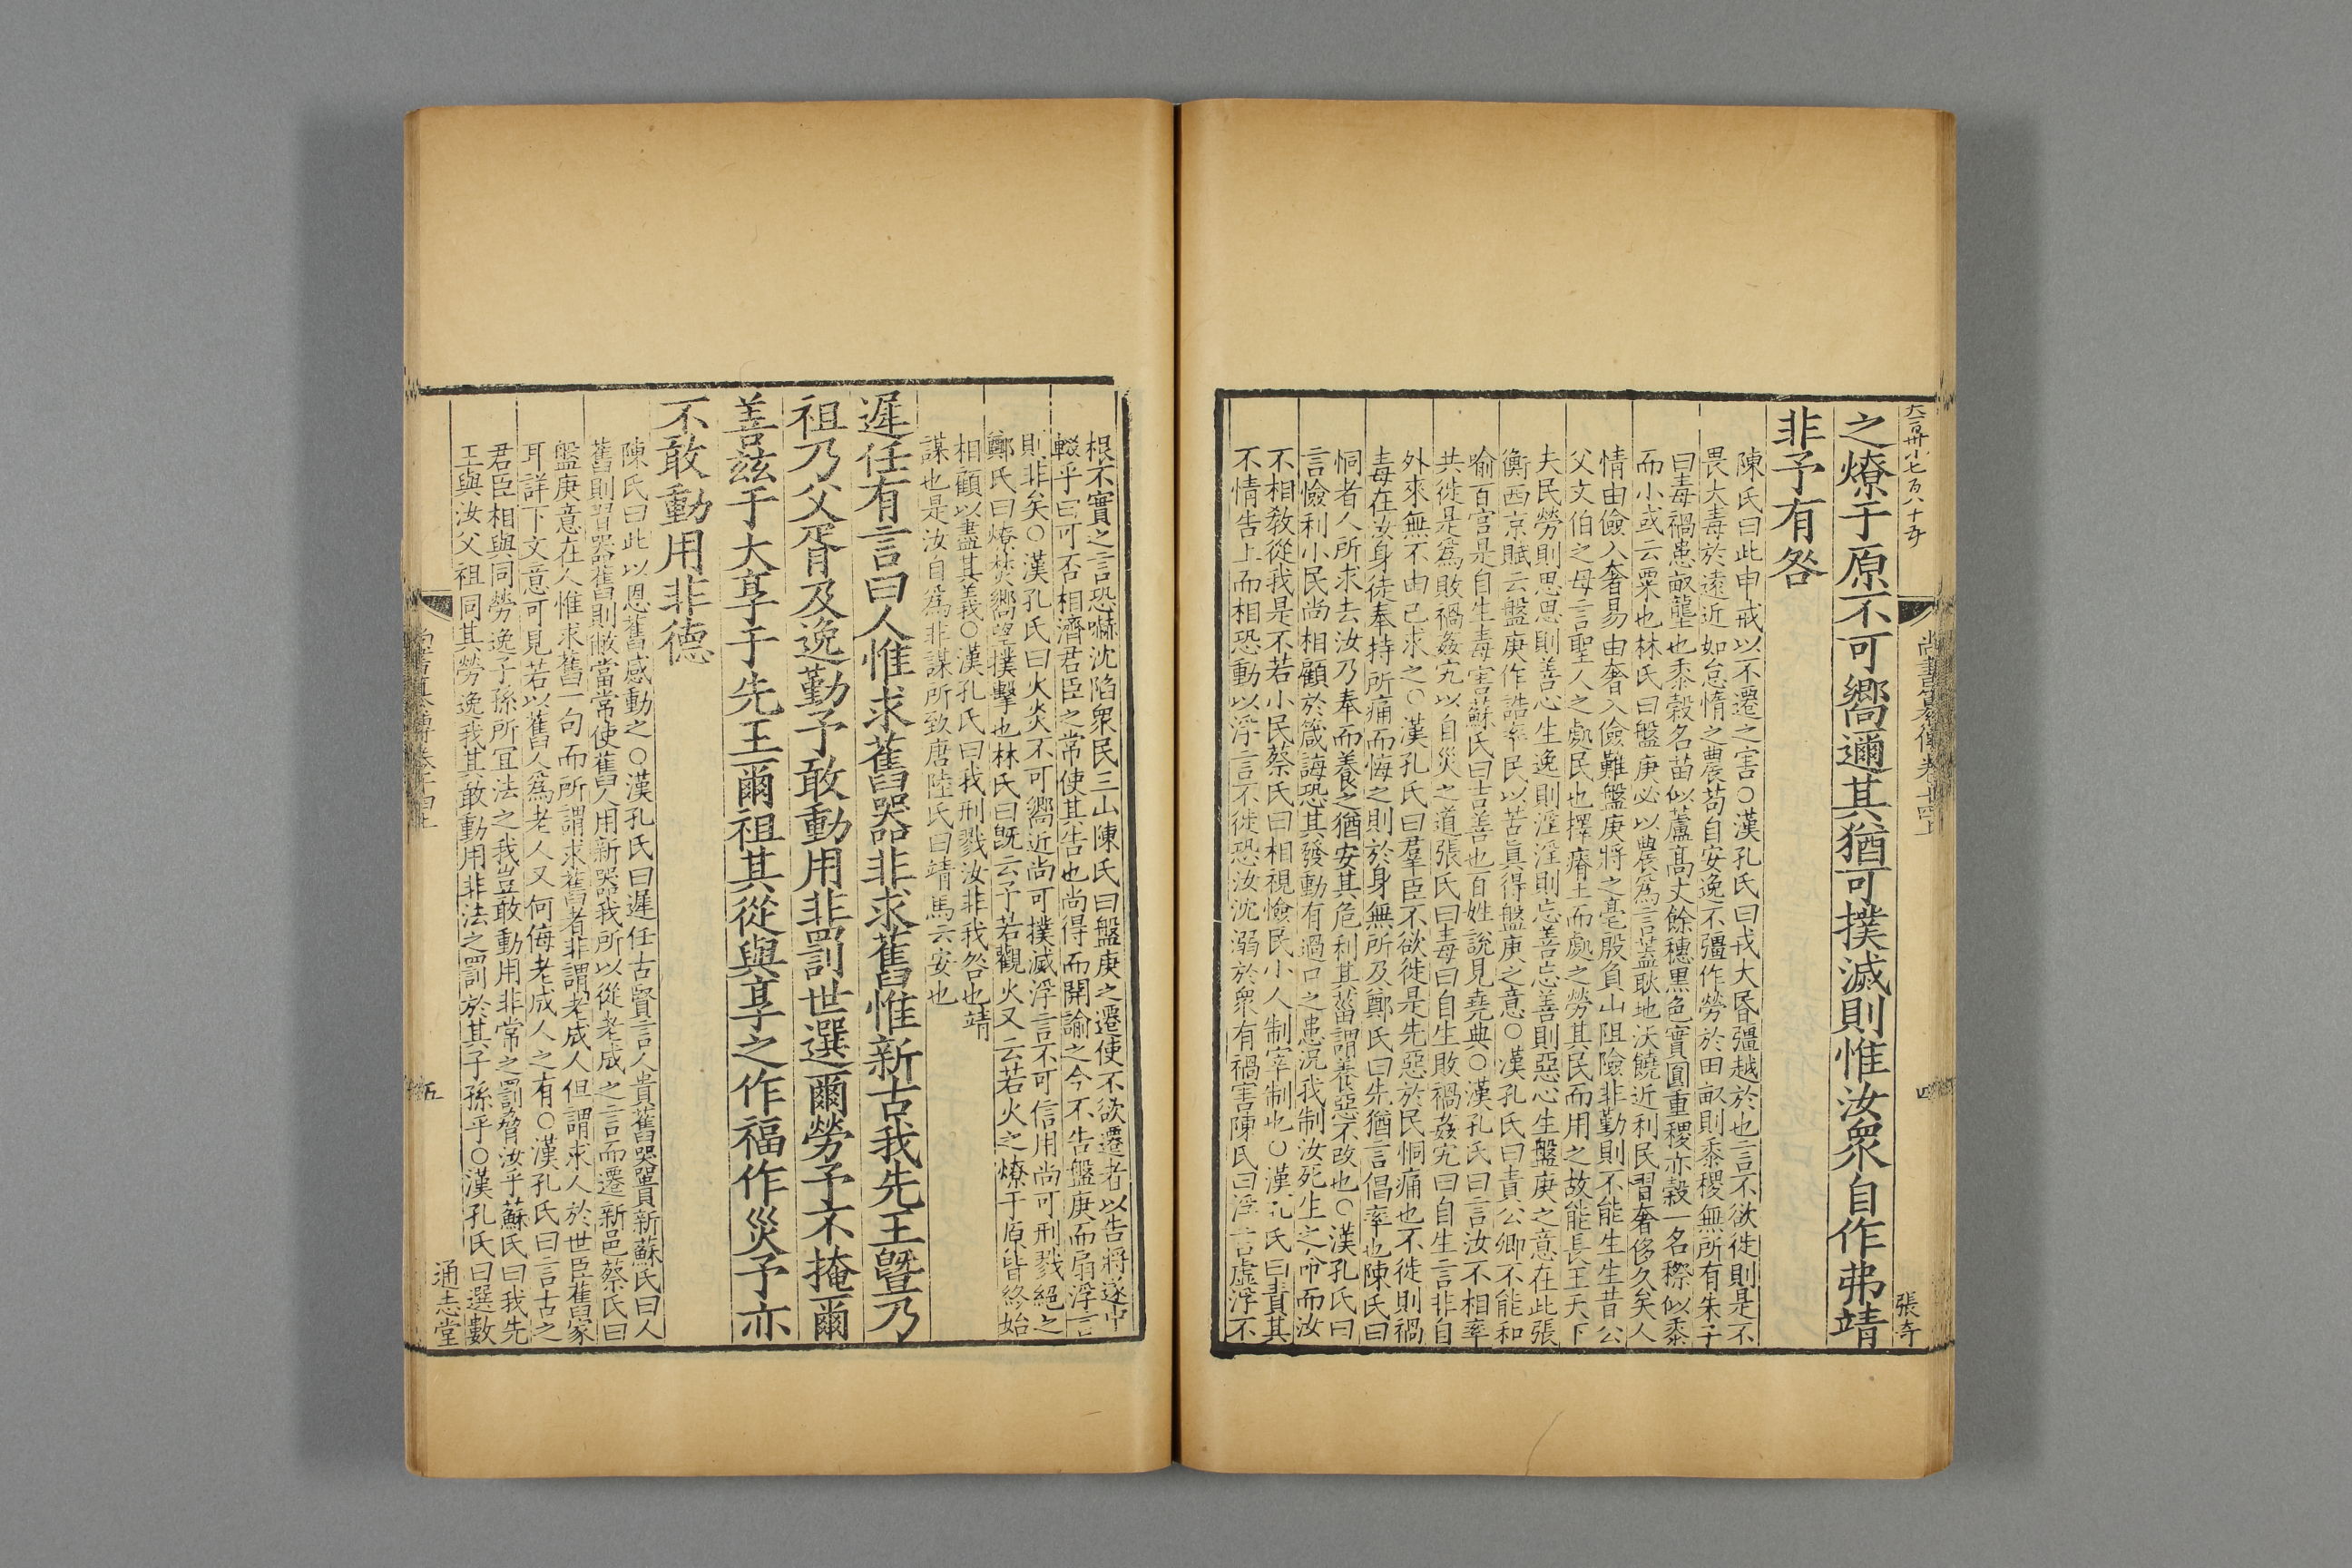 之燎于原不可嚮邇其猶可撲滅則惟汝衆自作弗靖
非予有咎
陳氏曰此申戒以不遷之害○漢孔氏曰戎大昬彊越於也言不欲徙則是不
畏大毒於遠近如怠惰之農苟自安逸不彊作勞於田畝則黍稷無所有朱子
曰毒禍患畝壟也黍穀名苗似蘆高丈餘穗黒色實圓重稷亦穀一名穄似黍
而小或云粟也林氏曰盤庚必以農爲言蓋耿地沃饒近利民習奢侈久矣人
情由儉入奢易由奢入儉難盤庚將之亳殷負山阻險非勤則不能生生昔公
父文伯之母言聖人之處民也擇瘠土而處之勞其民而用之故能長王天下
夫民勞則思思則善心生逸則淫淫則忘善忘善則惡心生盤庚之意在此張
衡西京賦云盤庚作誥率民以苦眞得盤庚之意○漢孔氏曰責公卿不能和
喻百官是自生毒害蘇氏曰吉善也百姓說見堯典○漢孔氏曰言汝不相率
共徙是爲敗禍姦宄以自災之道張氏曰毒曰自生敗禍姦宄曰自生言非自
外來無不由已求之○漢孔氏曰羣臣不欲徙是先惡於民恫痛也不徙則禍
毒在汝身徒奉持所痛而悔之則於身無所及鄭氏曰先猶言倡率也陳氏曰
恫者人所求去汝乃奉而養之猶安其危利其菑謂養惡不改也○漢孔氏曰
言憸利小民尚相顧於箴誨恐其發動有過口之患況我制汝死生之命而汝
不相敎從我是不若小民蔡氏曰相視憸民小人制宰制也○漢孔氏曰責其
不情告上而相恐動以浮言不徙恐汝沈溺於衆有禍害陳氏曰浮言虛浮不
張奇
根不實之言恐嚇沈陷衆民三山陳氏曰盤庚之遷使不欲遷者以告將遂中
輟乎曰可否相濟君臣之常使其告也尚得而開諭之今不告盤庚而扇浮言
則非矣○漢孔氏曰火炎不可嚮近尚可撲滅浮言不可信用尚可刑戮絕之
鄭氏曰燎焚嚮望撲擊也林氏曰旣云予若觀火又云若火之燎于原皆終始
相顧以盡其義○漢孔氏曰我刑戮汝非我咎也靖
謀也是汝自爲非謀所致唐陸氏曰靖馬云安也
遲任有言曰人惟求舊器非求舊惟新古我先王曁乃
祖乃父胥及逸勤予敢動用非罰世選爾勞予不掩爾
善兹予大享于先王爾祖其從與享之作福作災予亦
不敢動用非德
陳氏曰此以恩舊感動之○漢孔氏曰遲任古賢言人貴舊器貴新蘇氏曰人
舊則習器舊則敝當常使舊人用新器我所以從老成之言而遷新邑蔡氏曰
盤庚意在人惟求舊一句而所謂求舊者非謂老成人但謂求人於世臣舊家
耳詳下文意可見若以舊人爲老人又何侮老成人之有○漢孔氏曰言古之
君臣相與同勞逸子孫所宜法之我豈敢動用非常之罰脅汝乎蘇氏曰我先
王與汝父祖同其勞逸我其敢動用非法之罰於其子孫乎○漢孔氏曰選數
五
通志堂